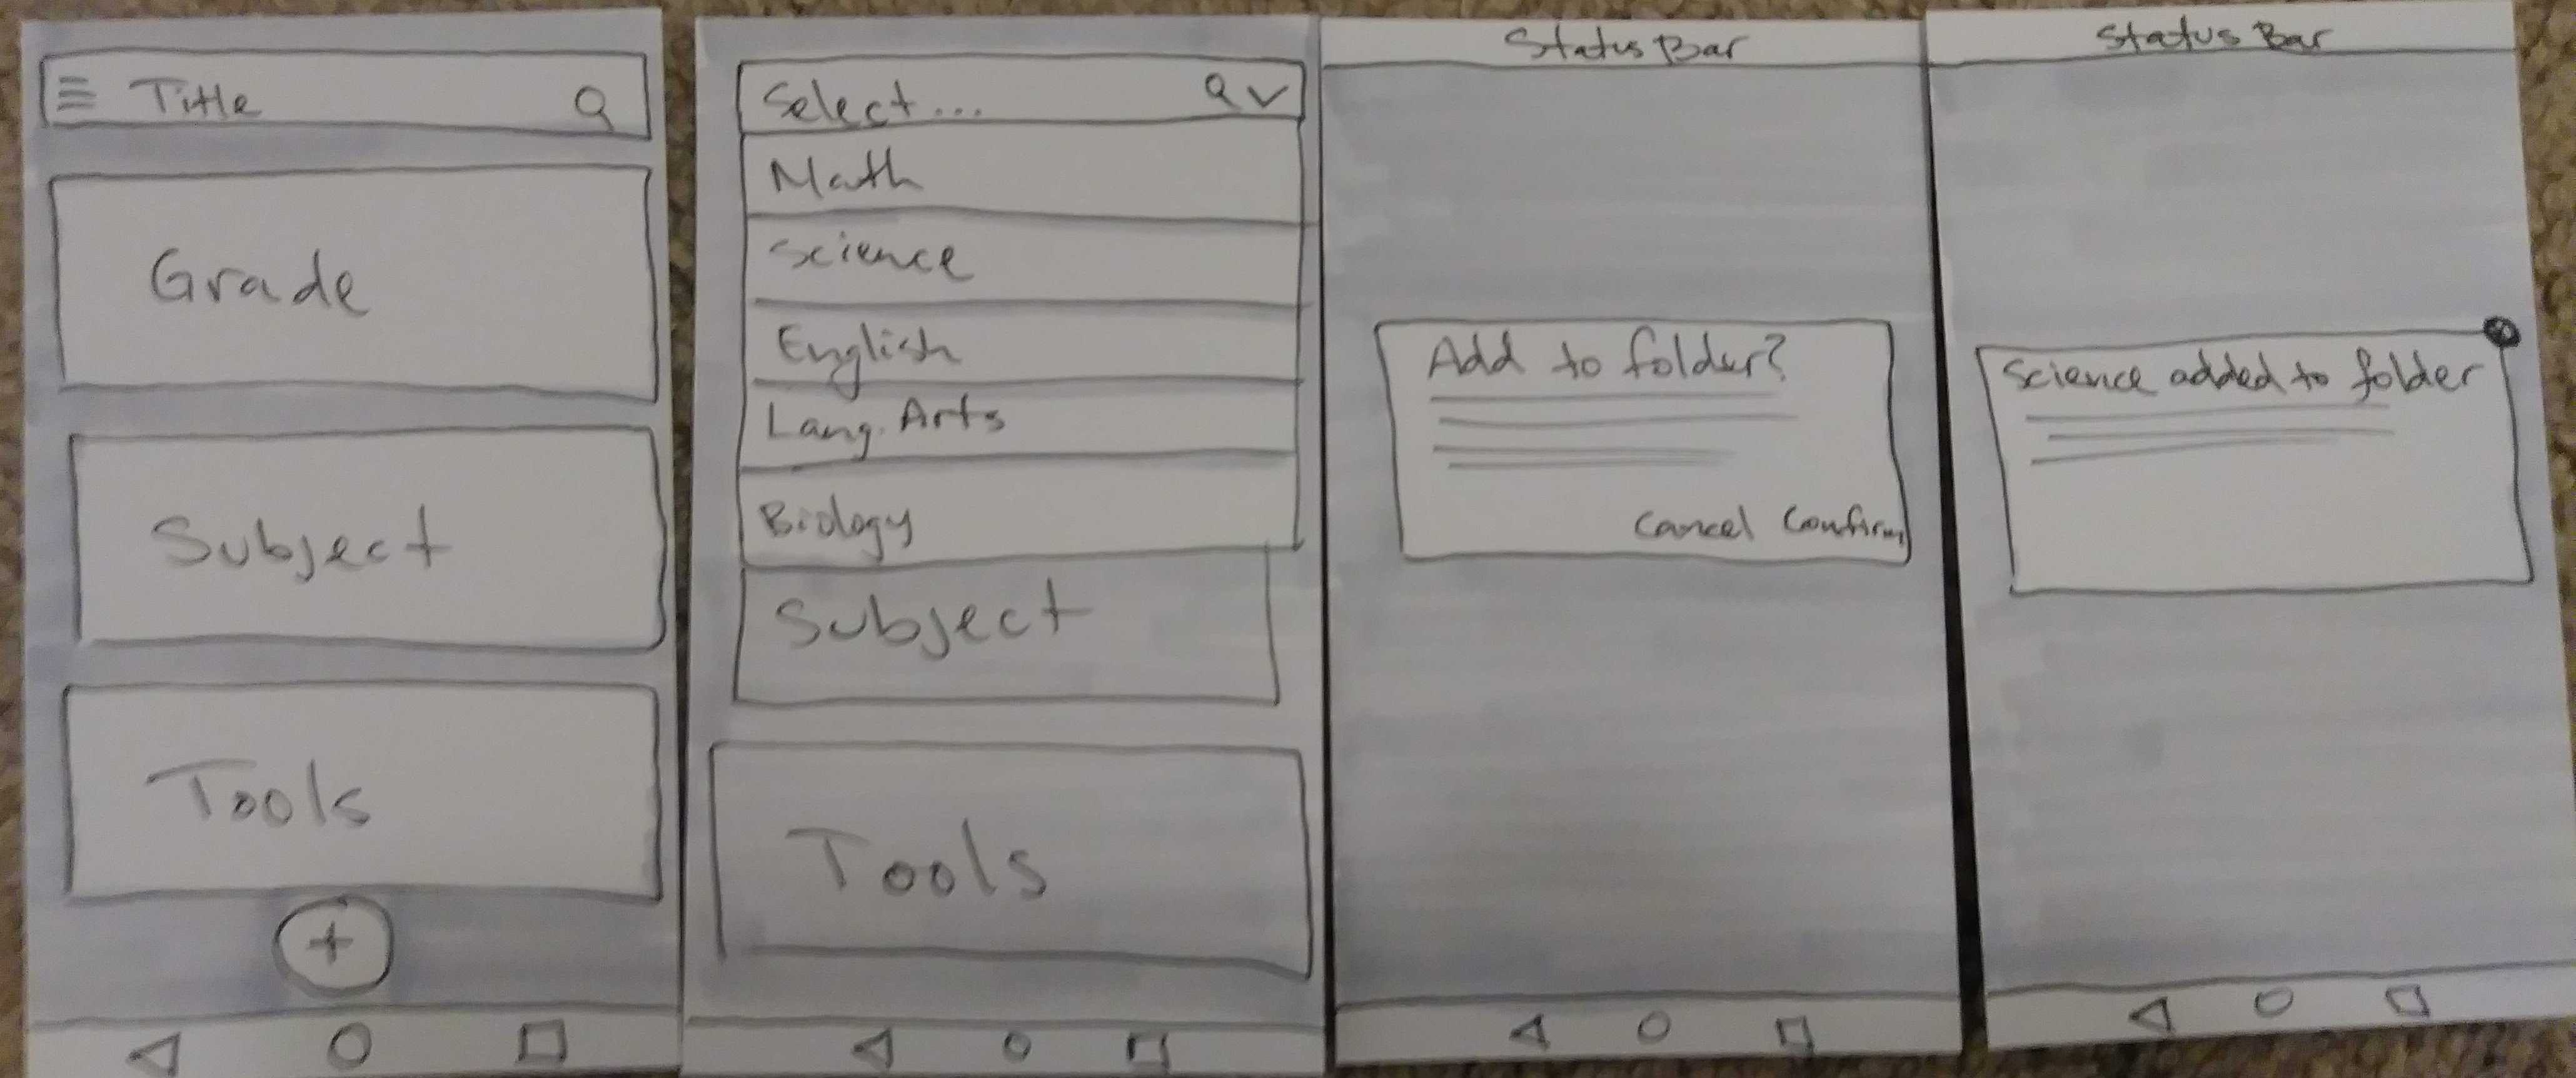 Title
Grade
Subject
Tools
+
Select...
Math
Science
English
Lang. Arts
Biology
Subject
Tools
Status Bar
Add to folder?
Cancel Confirm
Status Bar
Science added to folder